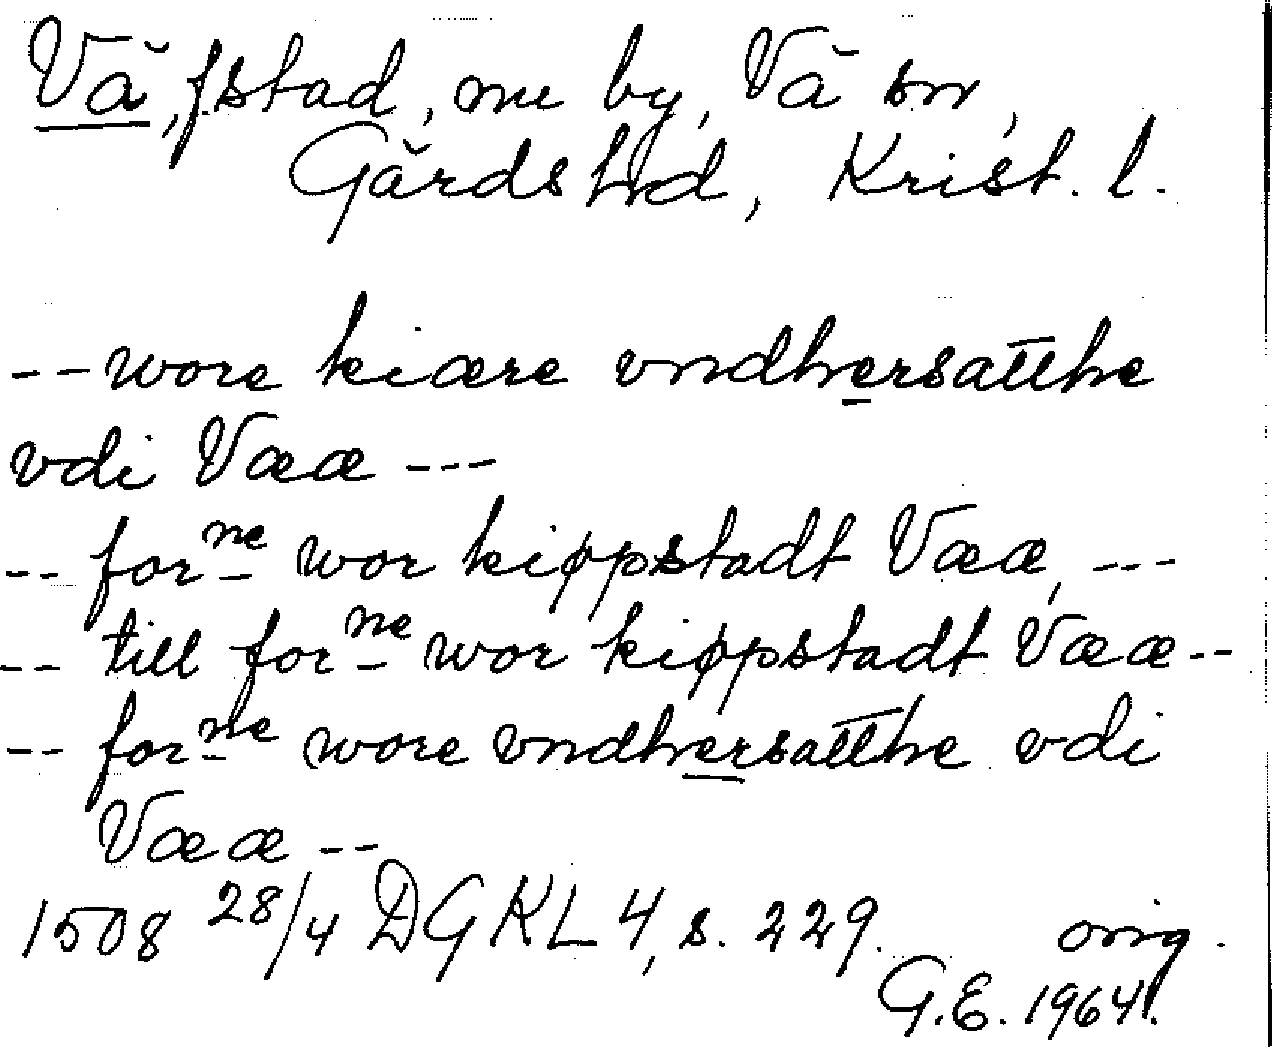 Vå, f stad, nu by, Vå sn,
Gärds hd, Krist. l.
-- wore kiære vndhersatthe
vdi Vææ ---
-- forne wor kippstadt Vææ, ---
-- till forne wor kippstadt Vææ --
-- forne wore vndhersatthe vdi
Vææ --
1508 28/4 DGKL 4, s. 229. orig.
G.E. 1964.